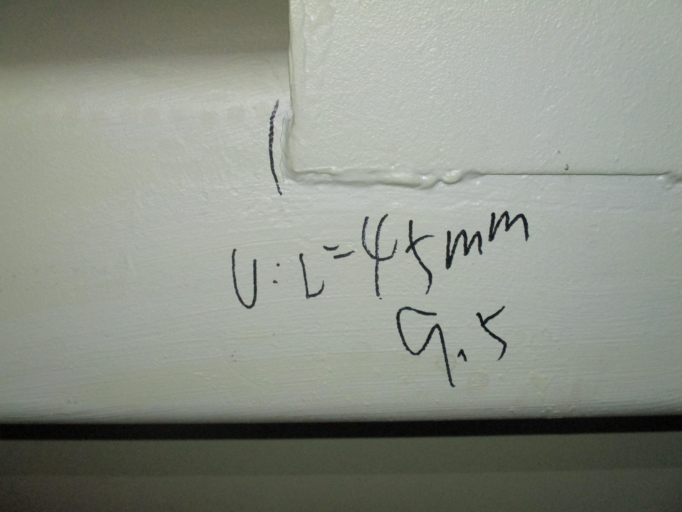 U:L=45mm
9.5